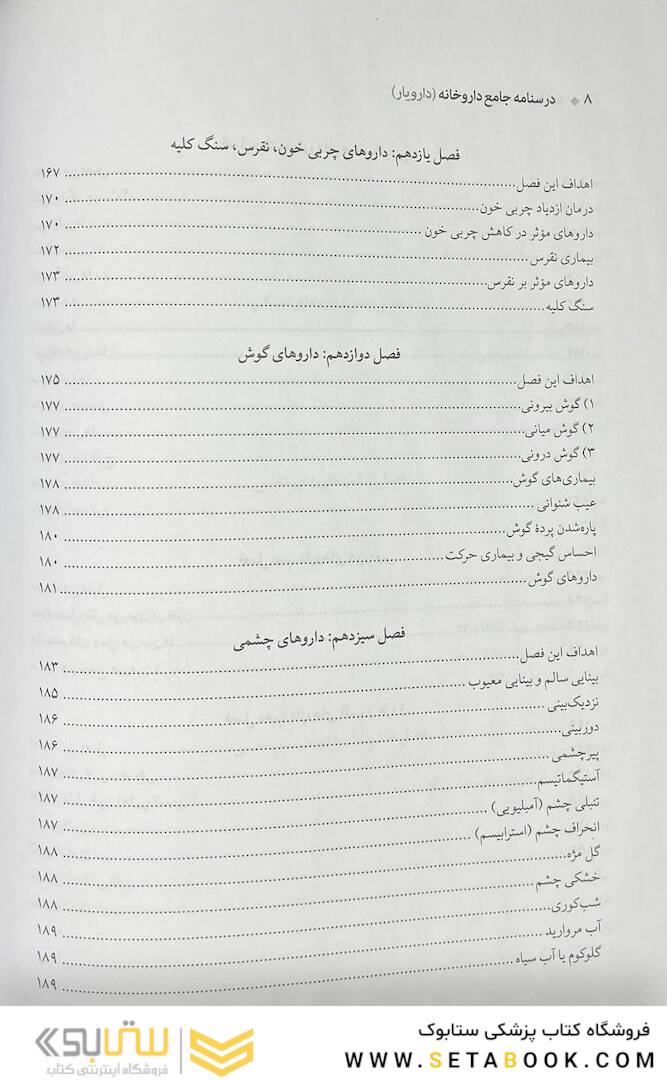 ۸ ◆ درسنامه جامع داروخانه (دارویار)
فصل یازدهم: داروهای چربی خون، نقرس، سنگ کلیه
اهداف این فصل ........ ۱۶۷
درمان ازدیاد چربی خون ........ ۱۷۰
داروهای مؤثر در کاهش چربی خون ........ ۱۷۰
بیماری نقرس ........ ۱۷۲
داروهای مؤثر بر نقرس ........ ۱۷۳
سنگ کلیه ........ ۱۷۳
فصل دوازدهم: داروهای گوش
اهداف این فصل ........ ۱۷۵
۱) گوش بیرونی ........ ۱۷۷
۲) گوش میانی ........ ۱۷۷
۳) گوش درونی ........ ۱۷۷
بیماری‌های گوش ........ ۱۷۸
عیب شنوائی ........ ۱۷۸
پاره‌شدن پردهٔ گوش ........ ۱۸۰
احساس گیجی و بیماری حرکت ........ ۱۸۰
داروهای گوش ........ ۱۸۱
فصل سیزدهم: داروهای چشمی
اهداف این فصل ........ ۱۸۳
بینایی سالم و بینایی معیوب ........ ۱۸۵
نزدیک‌بینی ........ ۱۸۶
دوربینی ........ ۱۸۶
پیرچشمی ........ ۱۸۷
آستیگماتیسم ........ ۱۸۷
تنبلی چشم (آمبلیوپی) ........ ۱۸۷
انحراف چشم (استرابیسم) ........ ۱۸۸
گل مژه ........ ۱۸۸
خشکی چشم ........ ۱۸۸
شب‌کوری ........ ۱۸۹
آب مروارید ........ ۱۸۹
گلوکوم یا آب سیاه ........ ۱۸۹
فروشگاه کتاب پزشکی ستابوک
WWW.SETABOOK.COM
ستابوک
فروشگاه اینترنتی کتاب